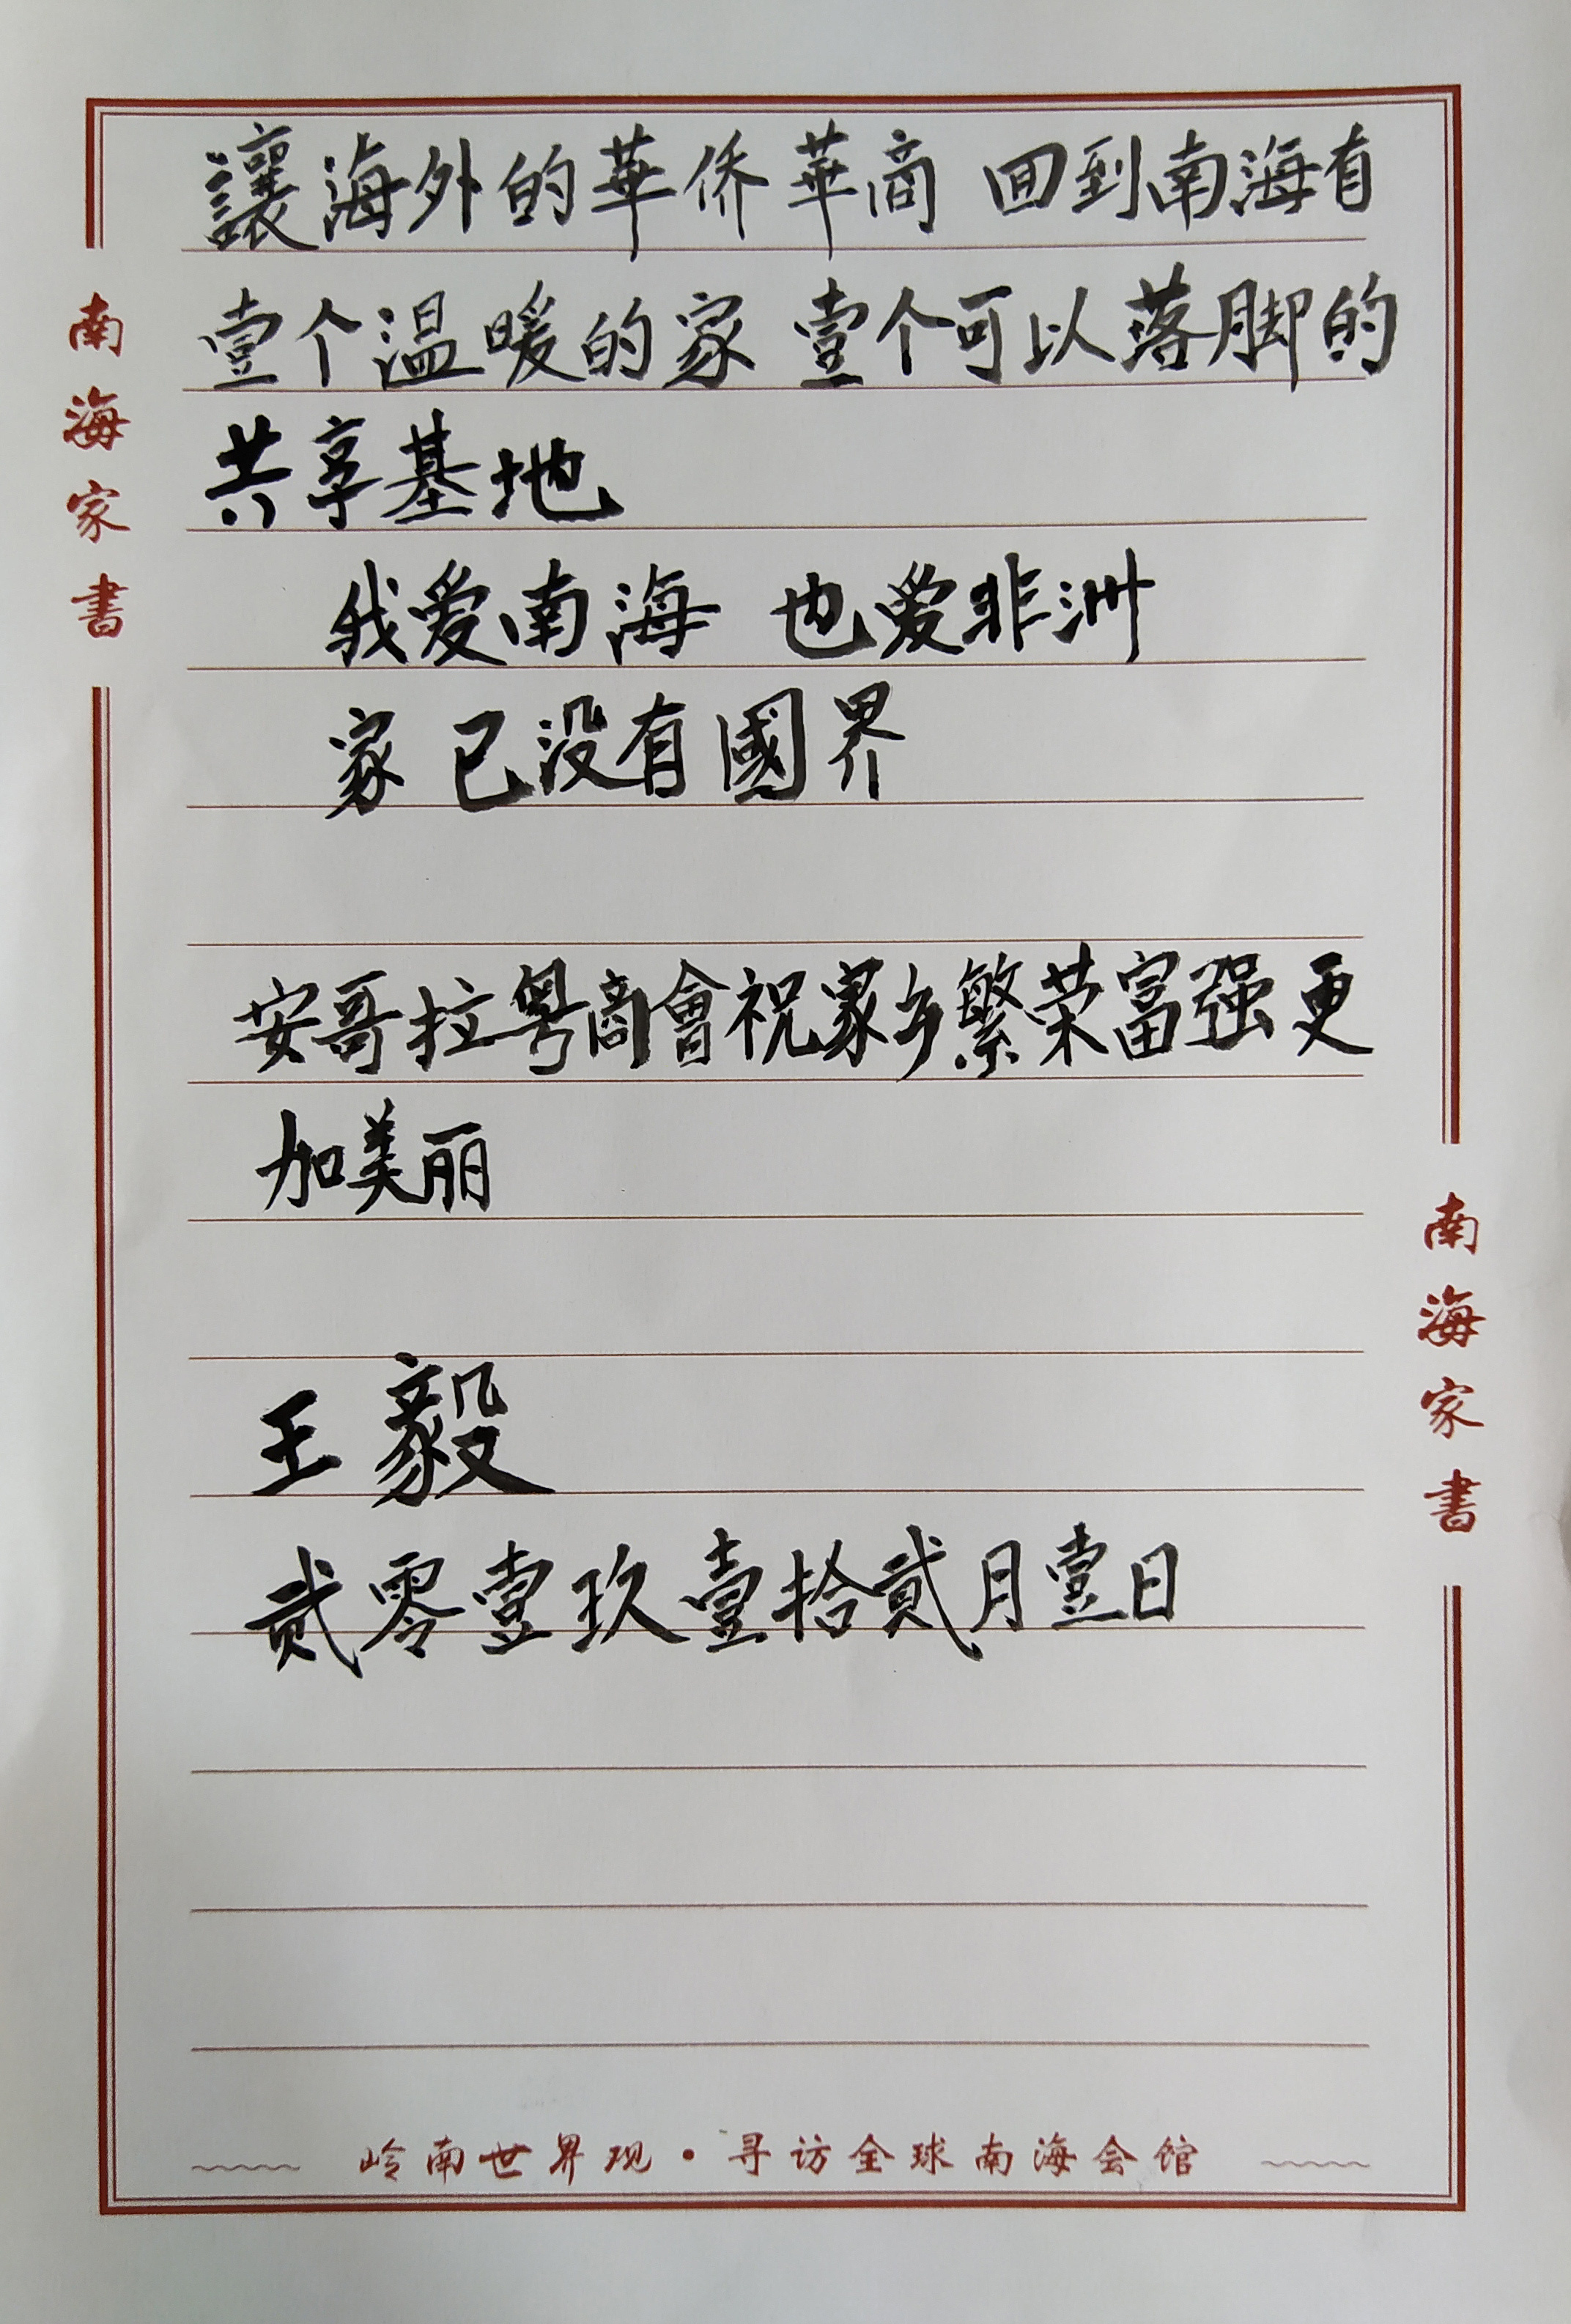 讓海外的華侨華商 回到南海有
壹个温暖的家 壹个可以落脚的
共享基地
我爱南海 也爱非洲
家已没有國界
安哥拉粤商會祝家乡繁荣富强更
加美丽
王毅
贰零壹玖壹拾贰月壹日
南海家書
南海家書
岭南世界观·寻访全球南海会馆